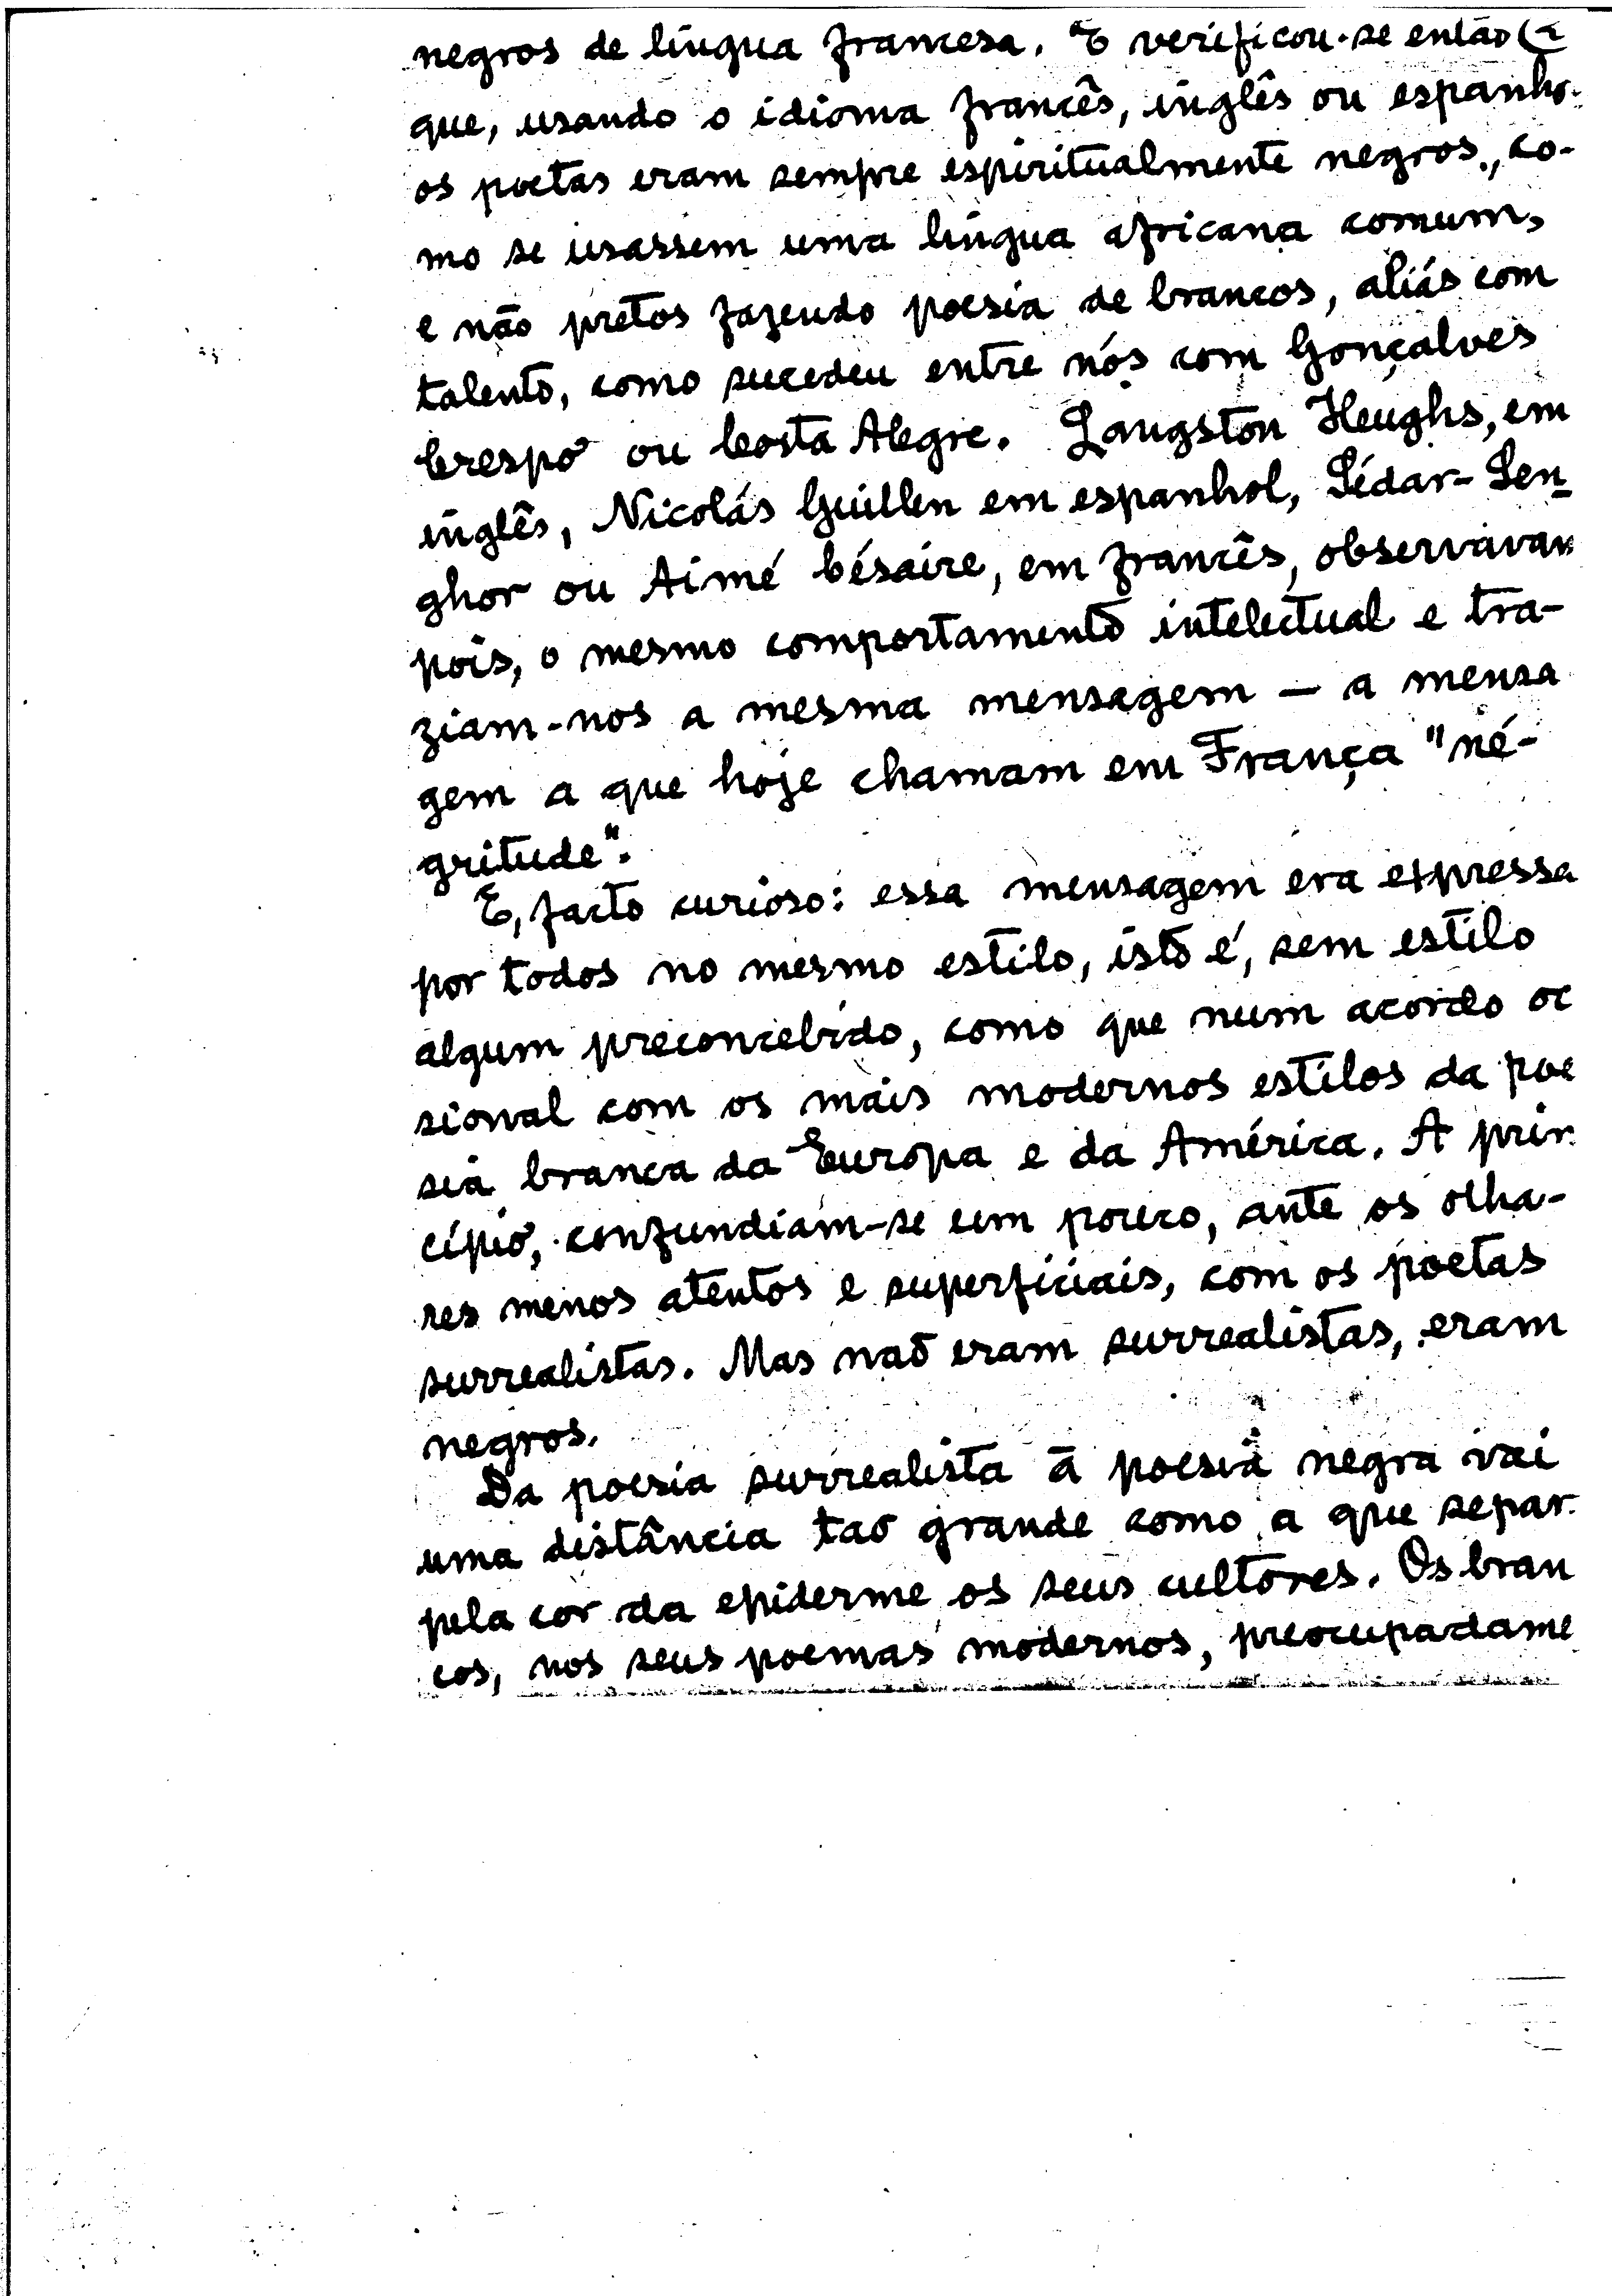 negros de língua francesa. E verificou-se então (
que, usando o idioma francês, inglês ou espanho
os poetas eram sempre espiritualmente negros, co-
mo se usassem uma língua africana comum,
e não pretos fazendo poesia de brancos, aliás com
talento, como sucedeu entre nós com Gonçalves
Crespo ou Costa Alegre. Langston Heughs, em
inglês, Nicolás Guillen em espanhol, Sédar-Sen
ghor ou Aimé Césaire, em francês, observavam
pois, o mesmo comportamento intelectual e tra-
ziam-nos a mesma mensagem — a mensa
gem a que hoje chamam em França "né-
gritude".
E, facto curioso: essa mensagem era expressa
por todos no mesmo estilo, isto é, sem estilo
algum preconcebido, como que num acordo oc
sional com os mais modernos estilos da poe
sia branca da Europa e da América. A prin
cípio, confundiam-se um pouco, ante os olha-
res menos atentos e superficiais, com os poetas
surrealistas. Mas não eram surrealistas, eram
negros.
Da poesia surrealista à poesia negra vai
uma distância tão grande como a que separ
pela cor da epiderme os seus cultores. Os bran
cos, nos seus poemas modernos, preocupadame